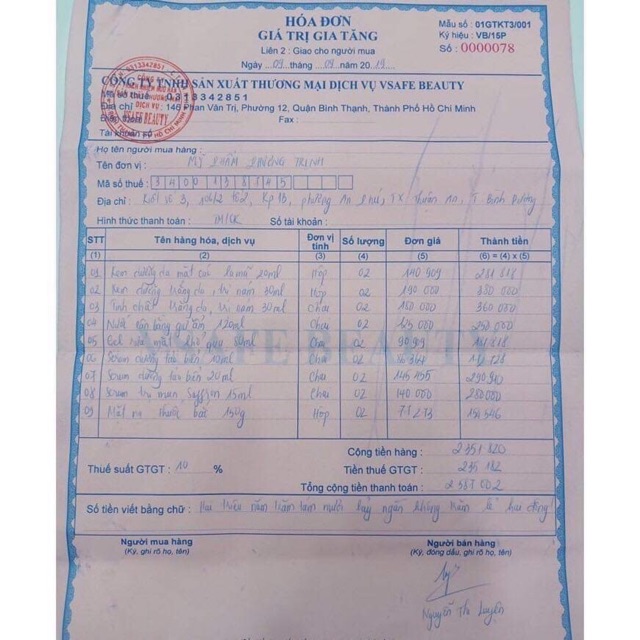 HÓA ĐƠN
GIÁ TRỊ GIA TĂNG
Liên 2 : Giao cho người mua
Ngày 09 tháng 09 năm 2019
Mẫu số : 01GTKT3/001
Ký hiệu : VB/15P
Số : 0000078
CÔNG TY TNHH SẢN XUẤT THƯƠNG MẠI DỊCH VỤ VSAFE BEAUTY
Mã số thuế : 0313342851
Địa chỉ : 146 Phan Văn Trị, Phường 12, Quận Bình Thạnh, Thành Phố Hồ Chí Minh
Điện thoại : Fax :
Số tài khoản
Họ tên người mua hàng :
Tên đơn vị : MỸ PHẨM PHƯƠNG TRINH
Mã số thuế : 3400138845
Địa chỉ : Kiốt số 3, tổ 2, Kp 1B, phường An Phú, TX Thuận An, T Bình Dương
Hình thức thanh toán : TM/CK Số tài khoản :
STT Tên hàng hóa, dịch vụ Đơn vị tính Số lượng Đơn giá Thành tiền
(1) (2) (3) (4) (5) (6) = (4) x (5)
01 Kem dưỡng da mặt cao la mã 20ml Hộp 02 140 909 281 818
02 Kem dưỡng trắng da, trị nám 30ml Hộp 02 190 000 380 000
03 Tinh chất trắng da, trị nám 30ml Chai 02 180 000 360 000
04 Nước cân bằng 120ml Chai 02 125 000 250 000
05 Gel rửa mặt 02 90 909 181 818
06 Serum dưỡng tảo biển 10ml Chai 02 56 364 112 728
07 Serum dưỡng tảo biển 20ml Chai 02 145 455 290 910
08 Serum trị mụn Saffron 15ml Chai 02 140 000 280 000
09 Mặt nạ thuốc bắc 150g Hộp 02 77 273 154 546
VSAFE BEAUTY
Cộng tiền hàng : 2 351 820
Thuế suất GTGT : 10 % Tiền thuế GTGT : 235 182
Tổng cộng tiền thanh toán : 2 587 002
Số tiền viết bằng chữ : Hai triệu năm trăm tám mươi bảy ngàn không trăm lẻ hai đồng
Người mua hàng
(Ký, ghi rõ họ, tên)
Người bán hàng
(Ký, đóng dấu, ghi rõ họ, tên)
Nguyễn Thị Luyện